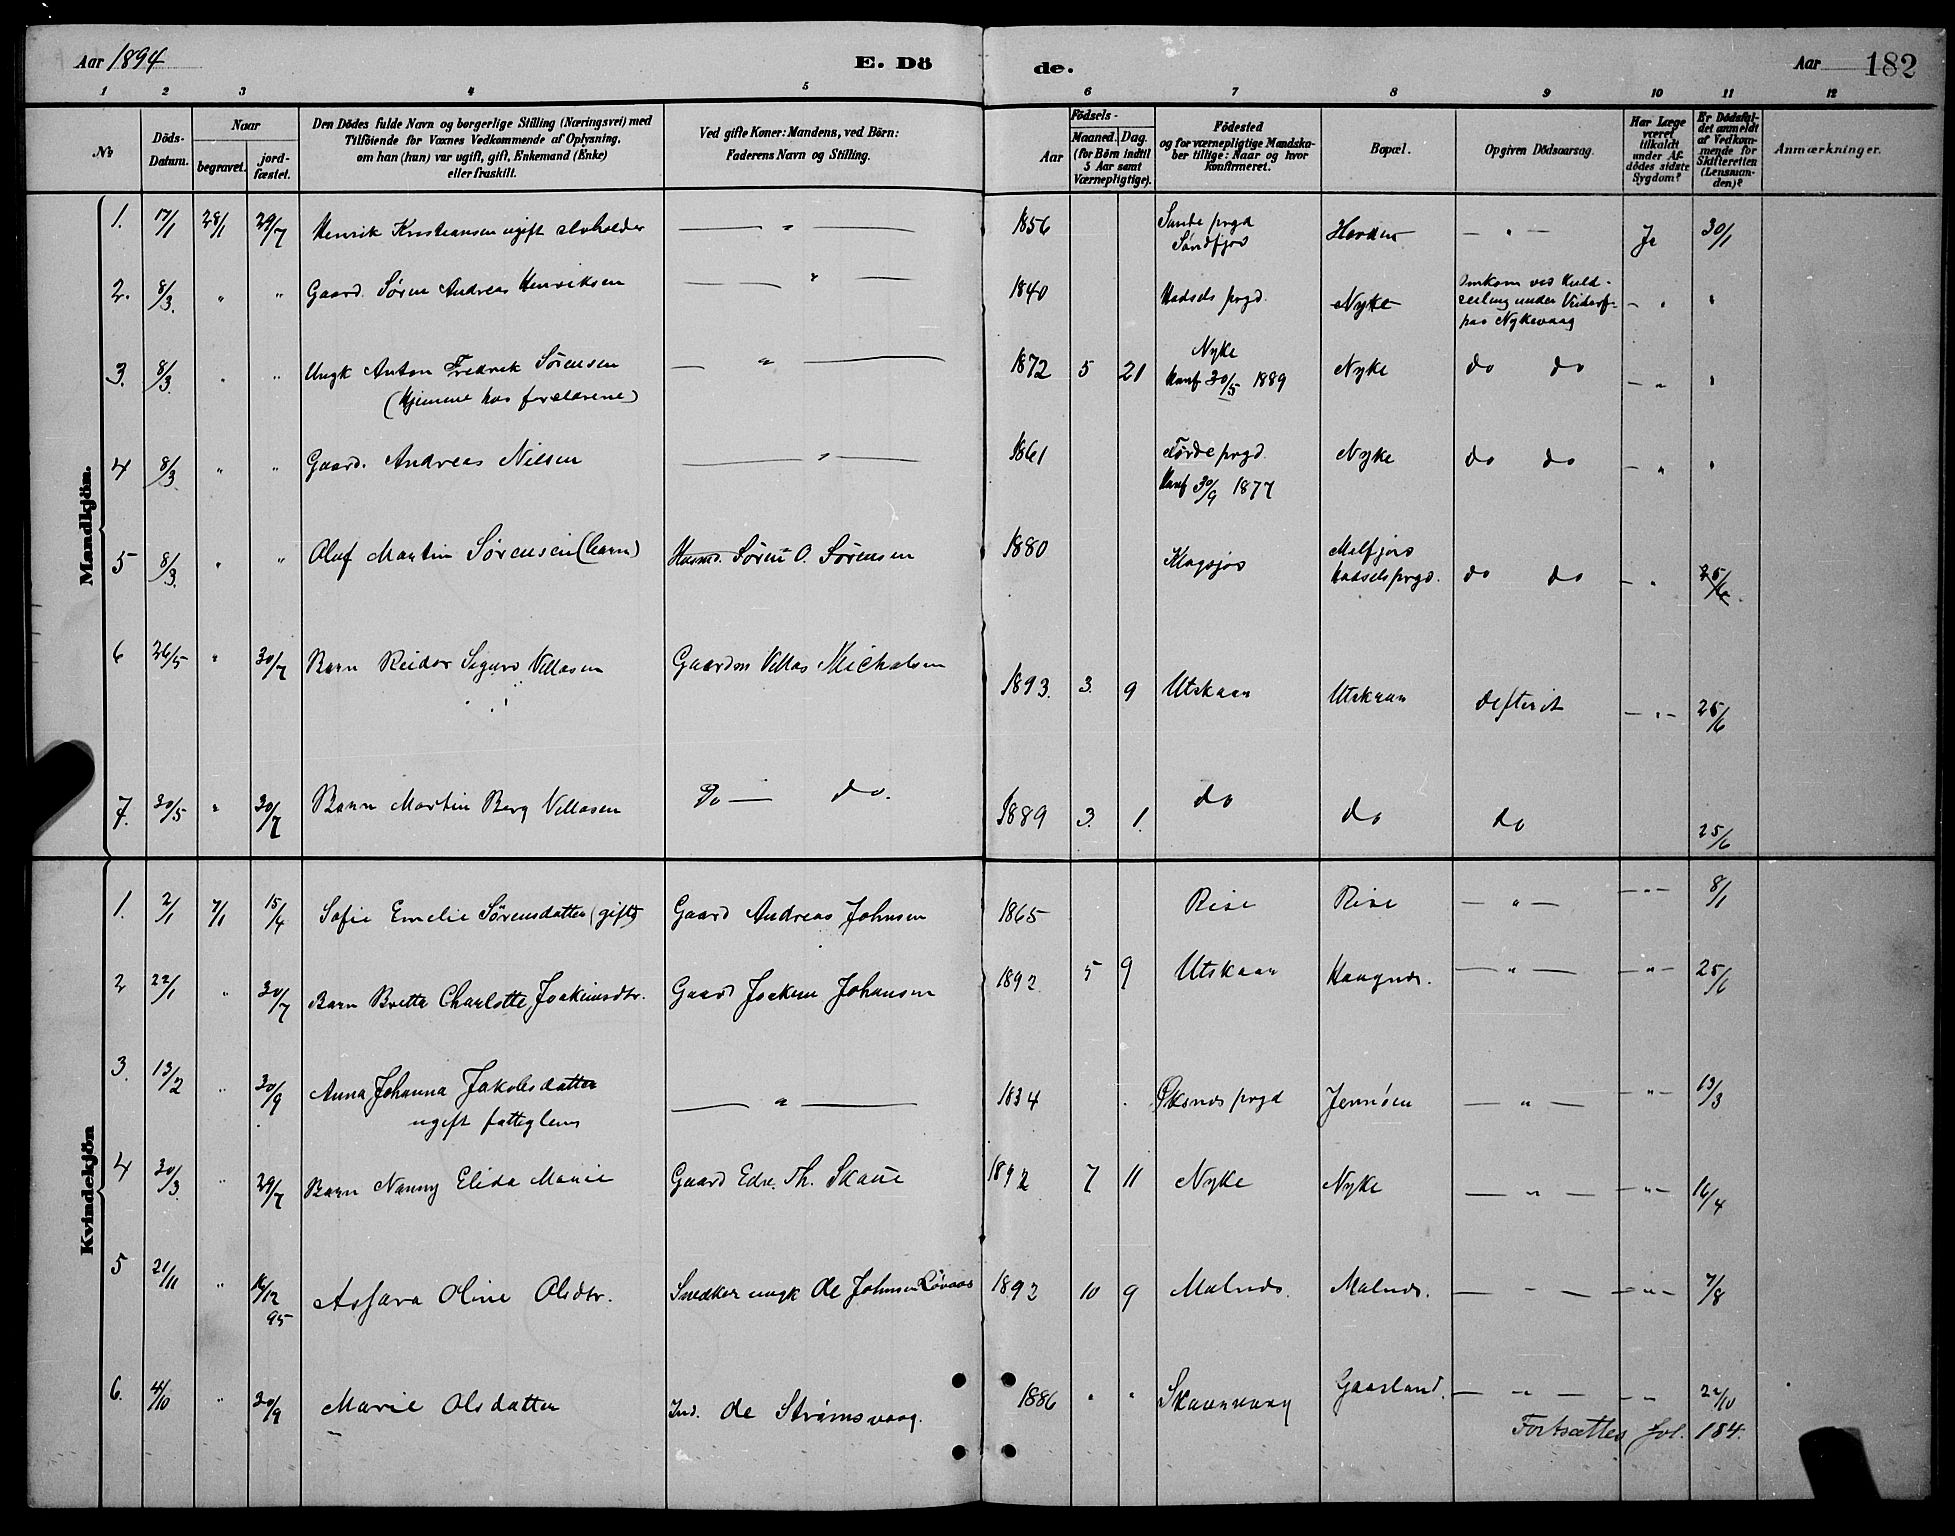 Aar 1894 E. Dö de. Aar 182
1 2 3 4 5 6 7 8 9 10 11 12
No
Döds-Datum.
Naar begravet. jordfæstet.
Den Dödes fulde Navn og borgerlige Stilling (Næringsvei) med
Tilföiende for Voxnes Vedkommende af Oplysning,
om han (hun) var ugift, gift, Enkemand (Enke)
eller fraskilt.
Ved gifte Koner: Mandens, ved Börn:
Faderens Navn og Stilling.
Födsels-
Aar Maaned. Dag.
(for Börn indtil
5 Aar samt
Værnepligtige).
Födested
og for værnepligtige Mandska-
ber tillige: Naar og hvor
konfirmeret.
Bopæl.
Opgiven Dödsaarsag.
Har Læge
været
tilkaldt
under Af-
dödes sidste
Sygdom?
Er Dödsfal-
det anmeldt
af Vedkom-
mende for
Skifteretten
(Lensman-
den)?
Anmærkninger.
Mandkjön.
1. 17/1 28/1 29/7 Henrik Kristiansen ugift — " — 1856 Sande prgd Søndfjor — " — Ja 30/1
2. 8/3 " " Gaard. Søren Andreas Henriksen — " — 1840 Hadsels prgd. Nyke Omkom ved Kuld-
seiling under
paa Nykevaag - " "
3. 8/3 " " Ungk Anton Fredrik Sørensen — " — 1872 5 21 Nyke Konf 30/5 1889 Nyke do do - " "
(hjemme hos forældrene)
4 8/3 " " Gaard. Andreas Nilsen — " — 1861 Førde prgd. Konf 30/9 1877 Nyke do do - " "
5 8/3 " " Oluf Martin Sørensen (barn) Søren O. Sørensen 1880 Klogsjor Melfjor Hadsels prgd. do do - " 25/6
6 26/5 " 30/7 Barn Reidor Sigurd Villasen Gaardm Villas Michalsen 1893. 3. 9 Utskaar Utskaar Difterit - " - 25/6
7. 30/5 " 30/7 Barn Martin Berg Villasen Do — do. 1889 3. 1. do do do 25/6
Kvindekjön
1. 2/1 7/1 15/4 Sofie Emelie Sørensdatter (gift) Gaard Andreas Johnsen 1865 Rise Rise — " — - " - 8/1
2 22/1 " 30/7 Barn Britta Charlotte Joakimsdtr. Gaard Joakim Johansen 1892 5 9 Utskaar Haugnes. — " — - " - 25/6
3. 13/2 " 30/9 Anna Johanna Jakobsdatter — " — 1834 Øksnes prgd Jennøen — " — - " - 13/3
ugift fattiglem
4 30/3 " 29/7 Barn Nanny Elida Marie Gaard Edv. Th. Skaue 1892 7 11 Nyke Nyke — " — - " - 16/4
5 21/11 " 16/12 95 Asfara Oline Olsdtr. Snedker ungk Ole Johnsen Løvaas 1892 10 9 Malnes. Malnes. — " — - " - 7/8
6. 4/10 " 30/9 Marie Olsdatter Ind. Ole Strømsvaag. 1886 " " Skaanvaag Gaasland. — " — - " - 22/10
Fortsættes fol. 184.